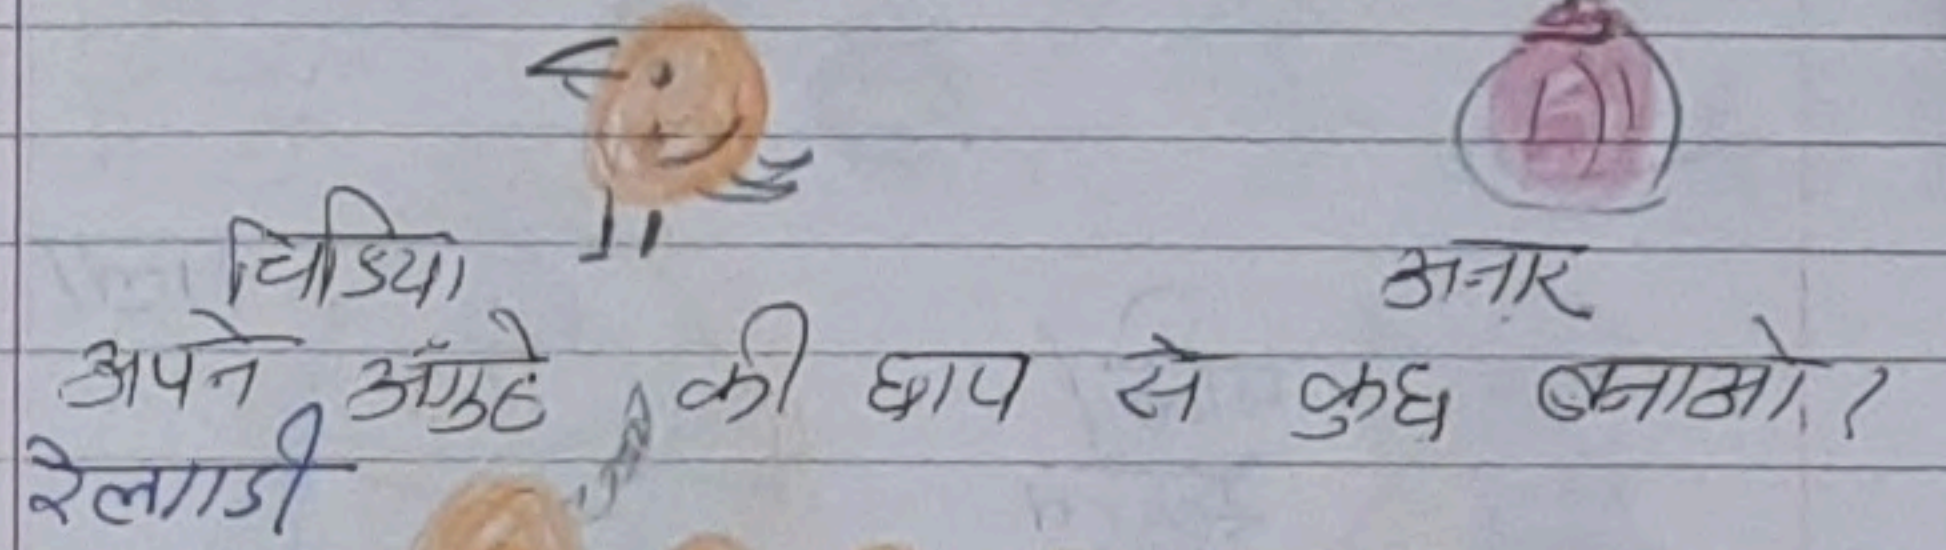 चिडिया अनार
अपने अँगुठे की छाप से कुछ बनाओ?
रेलगाडी